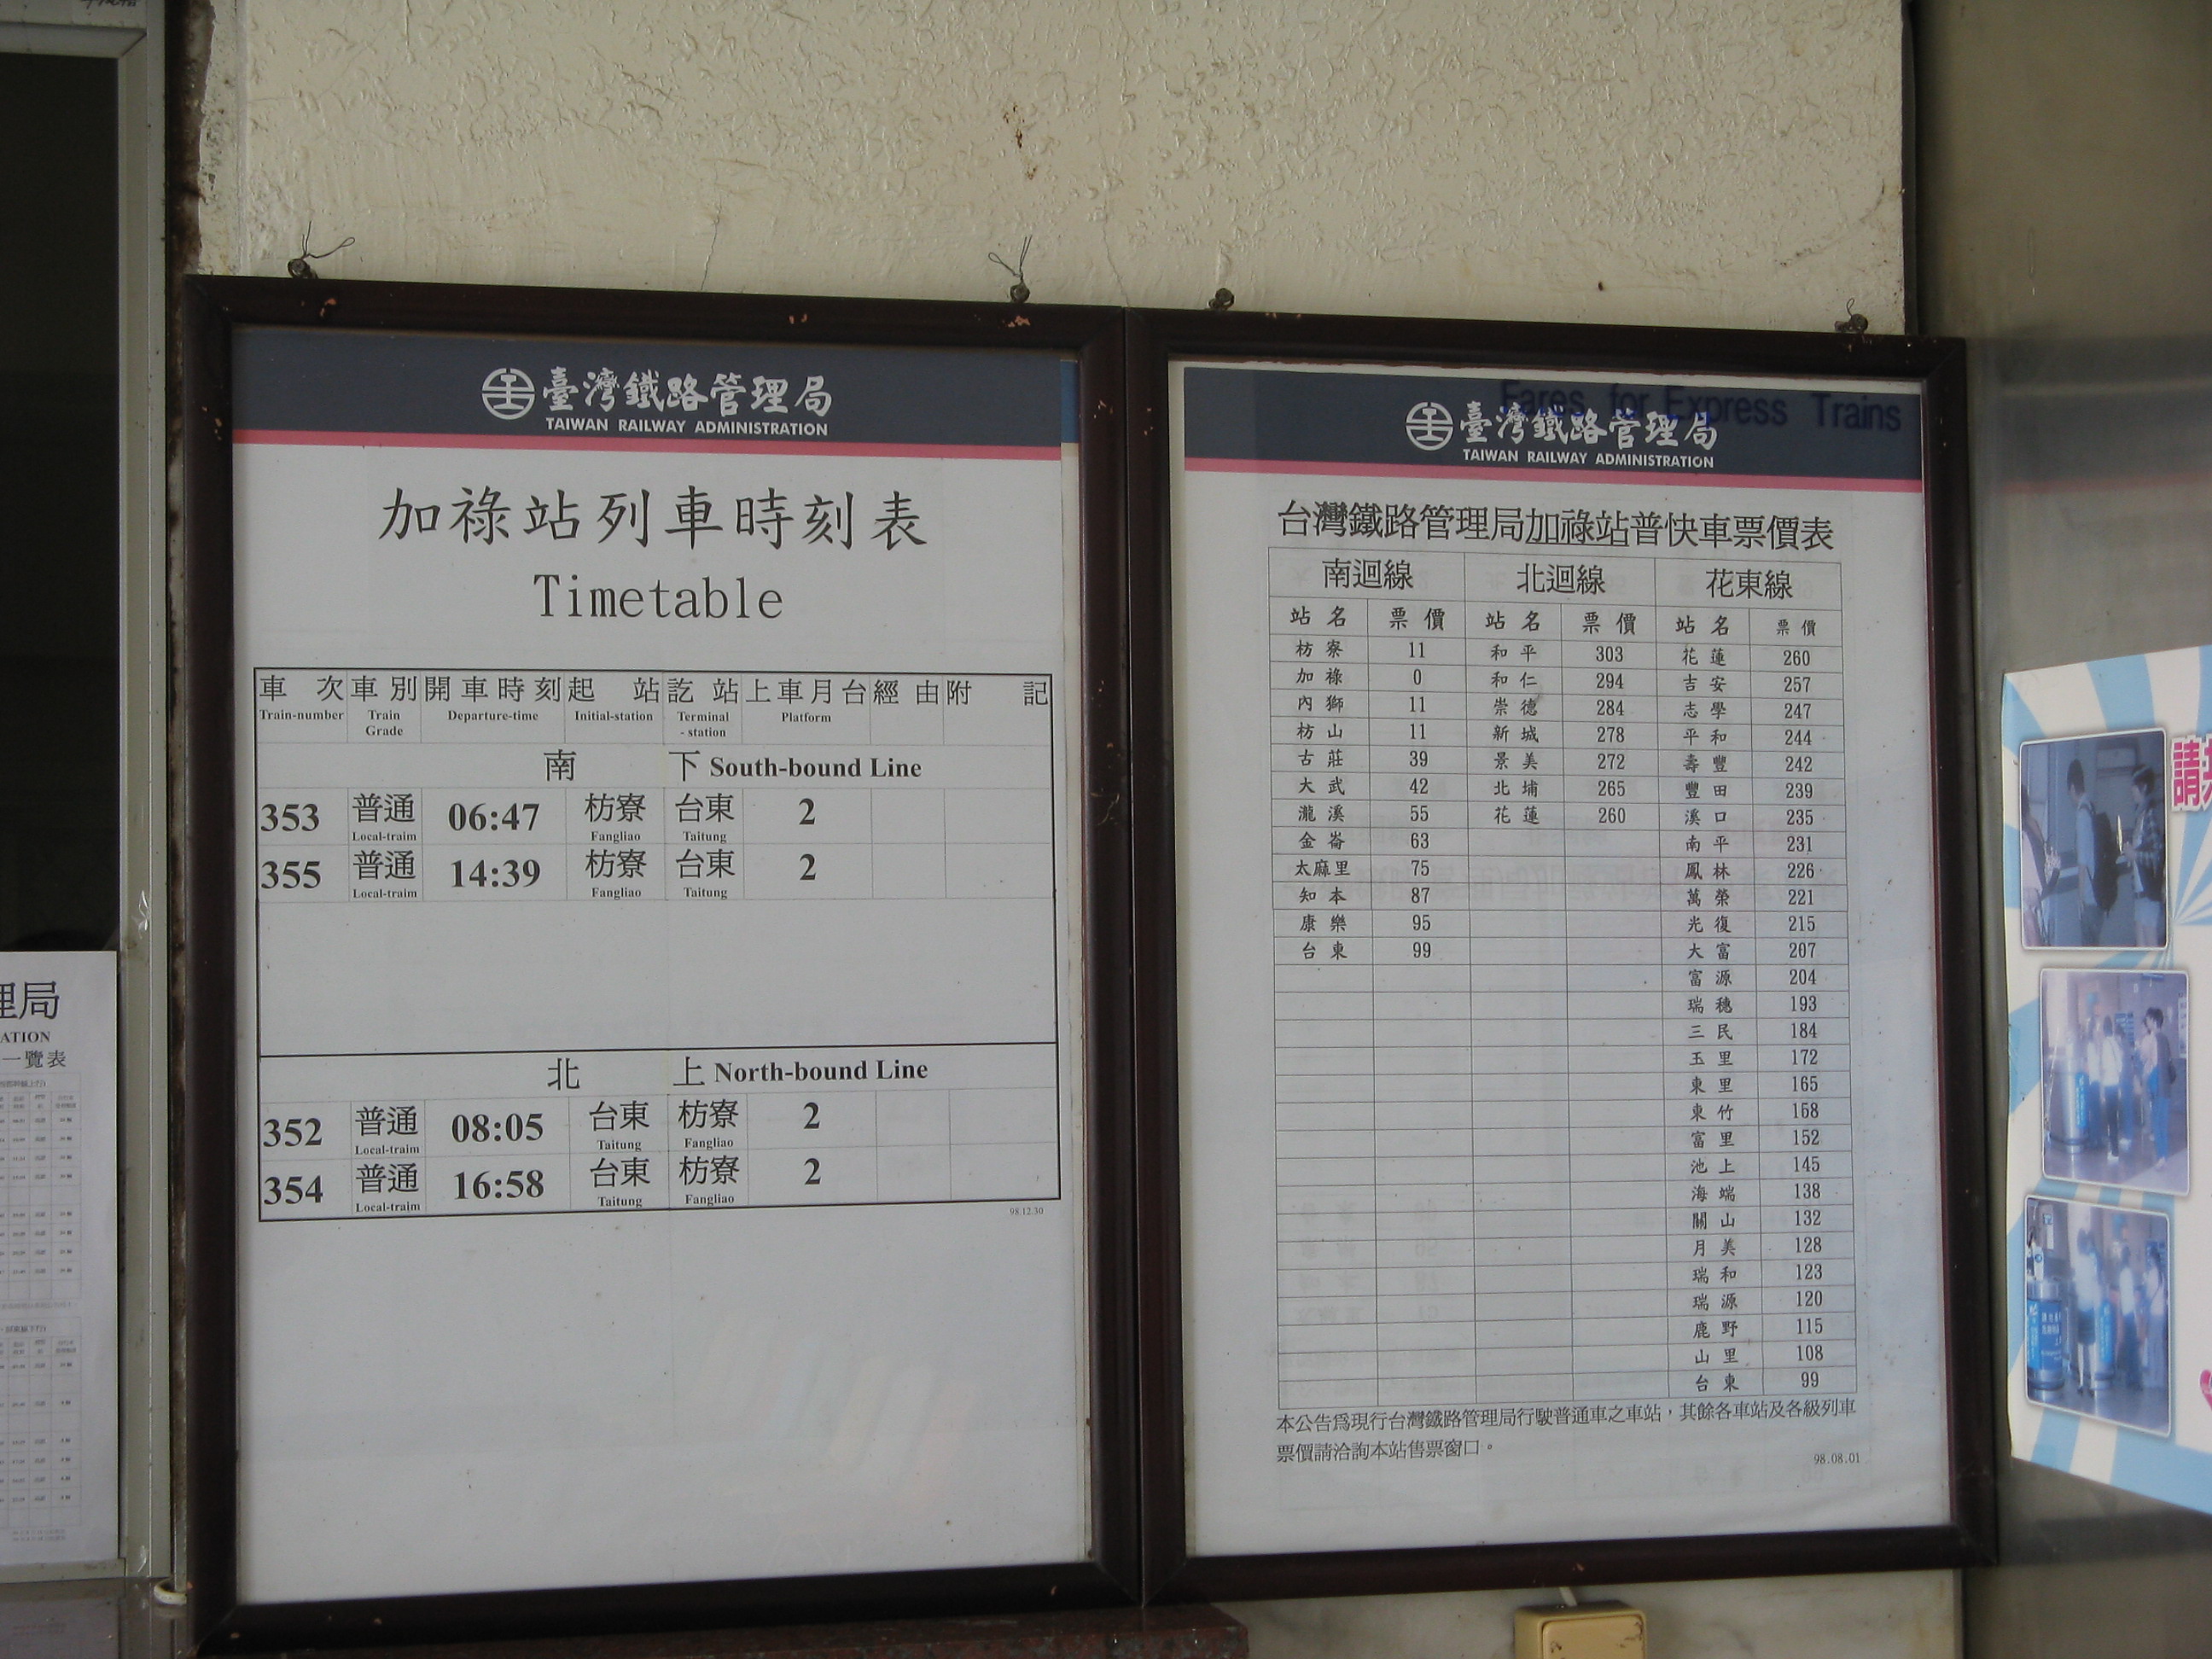 臺灣鐵路管理局
TAIWAN RAILWAY ADMINISTRATION
加祿站列車時刻表
Timetable
車次 車別 開車時刻 起站 訖站 上車月台 經由 附記
Train-number Train Grade Departure-time Initial-station Terminal-station Platform
南下 South-bound Line
353 普通 06:47 枋寮 台東 2
Local-traim Fangliao Taitung
355 普通 14:39 枋寮 台東 2
Local-traim Fangliao Taitung
北上 North-bound Line
352 普通 08:05 台東 枋寮 2
Local-traim Taitung Fangliao
354 普通 16:58 台東 枋寮 2
Local-traim Taitung Fangliao
98.12.30
Fares for Express Trains
臺灣鐵路管理局
TAIWAN RAILWAY ADMINISTRATION
台灣鐵路管理局加祿站普快車票價表
南迴線 北迴線 花東線
站名 票價 站名 票價 站名 票價
枋寮 11 和平 303 花蓮 260
加祿 0 和仁 294 吉安 257
內獅 11 崇德 284 志學 247
枋山 11 新城 278 平和 244
古莊 39 景美 272 壽豐 242
大武 42 北埔 265 豐田 239
瀧溪 55 花蓮 260 溪口 235
金崙 63 南平 231
太麻里 75 鳳林 226
知本 87 萬榮 221
康樂 95 光復 215
台東 99 大富 207
富源 204
瑞穗 193
三民 184
玉里 172
東里 165
東竹 158
富里 152
池上 145
海端 138
關山 132
月美 128
瑞和 123
瑞源 120
鹿野 115
山里 108
台東 99
本公告為現行台灣鐵路管理局行駛普通車之車站，其餘各車站及各級列車
票價請洽詢本站售票窗口。
98.08.01
理局
ATION
一覽表
請